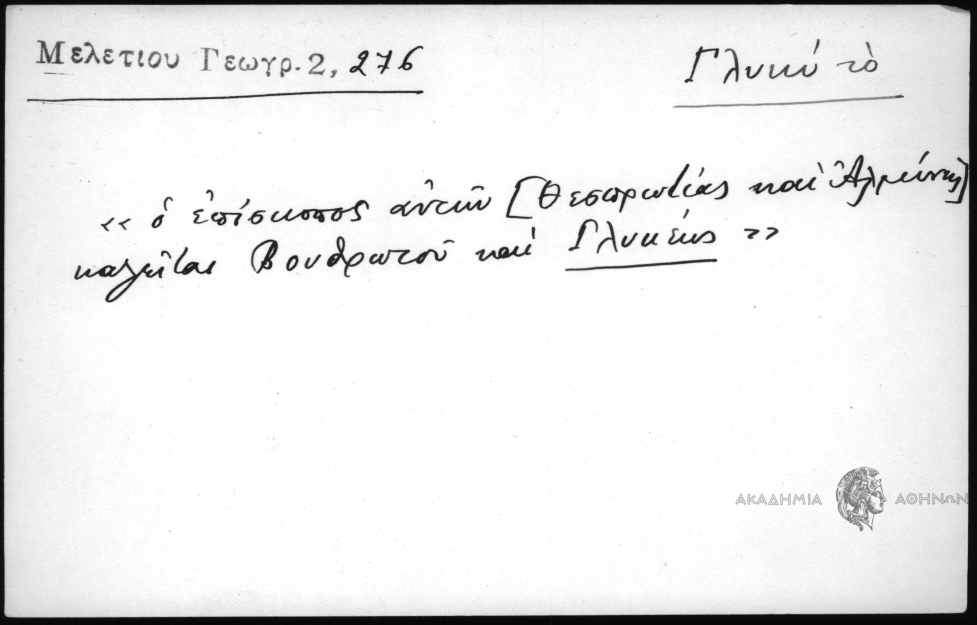 Μελετιου Γεωγρ. 2, 276
Γλυκύ τὸ
« ὁ ἐπίσκοπος αὐτῶν [Θεσπρωτίας καὶ Ἀλμήνης]
καλεῖται Βουθρωτοῦ καὶ Γλυκέως »
ΑΚΑΔΗΜΙΑ ΑΘΗΝΩΝ